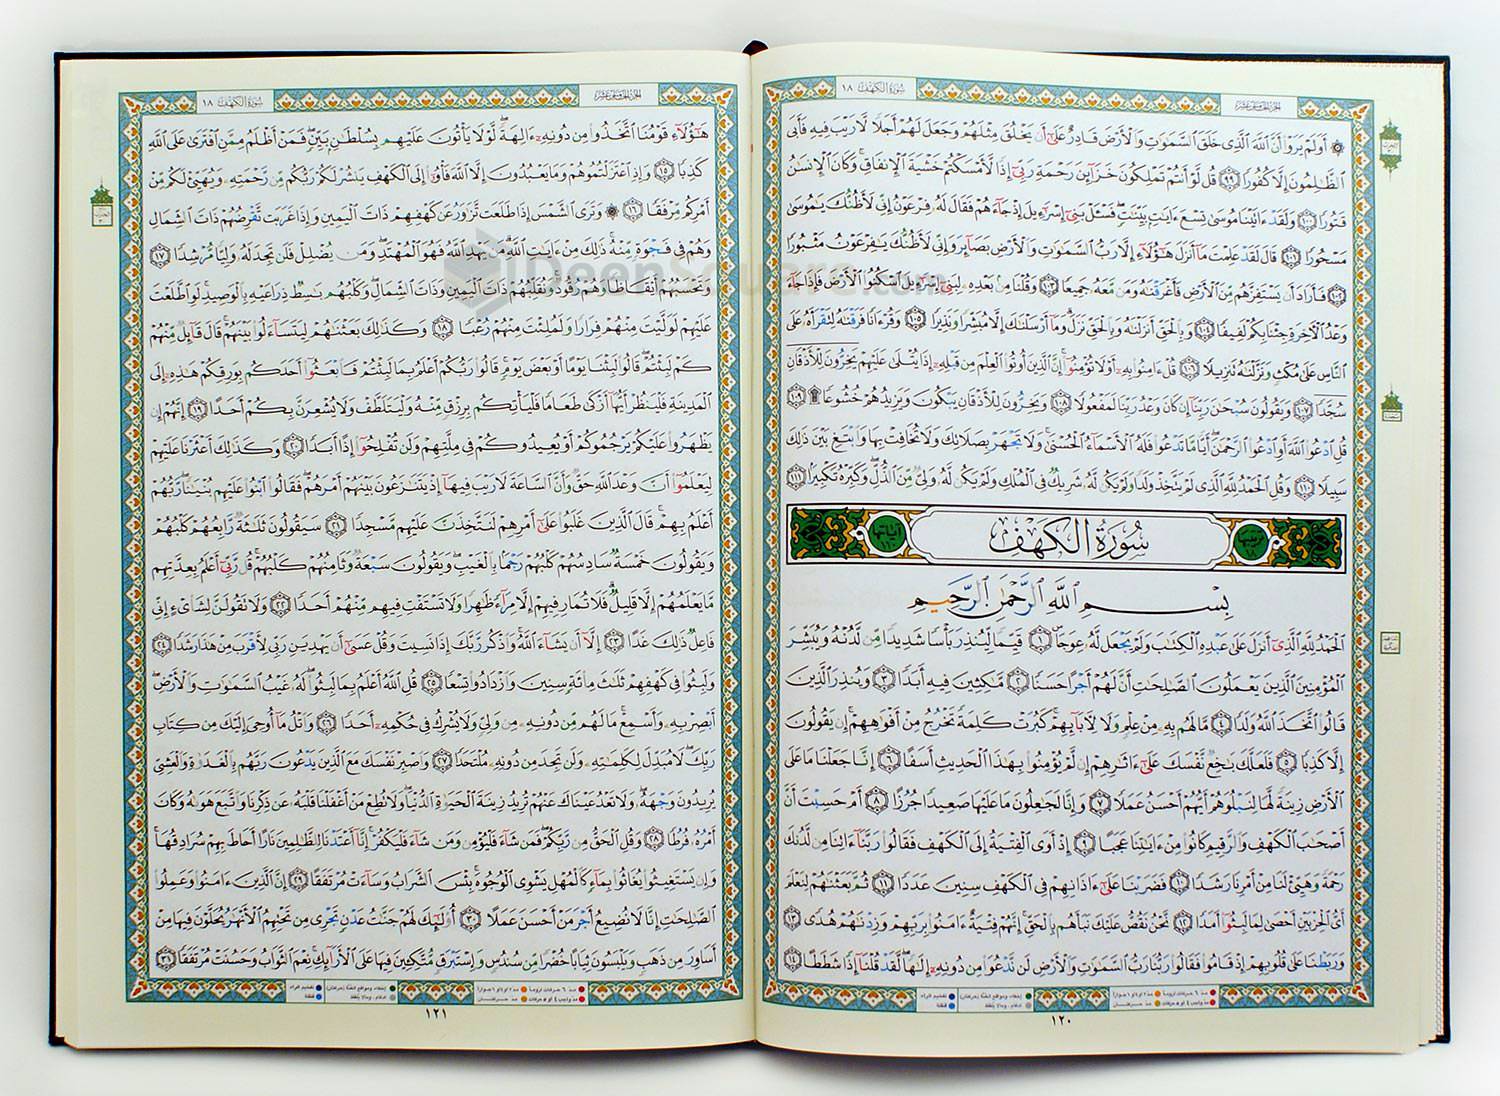 سُورَةُ الكَهْفِ ١٨
الجزء الخامس عشر
۞ أَوَلَمْ يَرَوْا۟ أَنَّ ٱللَّهَ ٱلَّذِى خَلَقَ ٱلسَّمَـٰوَٰتِ وَٱلْأَرْضَ قَادِرٌ عَلَىٰٓ أَن يَخْلُقَ مِثْلَهُمْ وَجَعَلَ لَهُمْ أَجَلًا لَّا رَيْبَ فِيهِ فَأَبَى
ٱلظَّـٰلِمُونَ إِلَّا كُفُورًا ٩٩ قُل لَّوْ أَنتُمْ تَمْلِكُونَ خَزَآئِنَ رَحْمَةِ رَبِّىٓ إِذًا لَّأَمْسَكْتُمْ خَشْيَةَ ٱلْإِنفَاقِ ۚ وَكَانَ ٱلْإِنسَـٰنُ
قَتُورًا ١٠٠ وَلَقَدْ ءَاتَيْنَا مُوسَىٰ تِسْعَ ءَايَـٰتٍۭ بَيِّنَـٰتٍ ۖ فَسْـَٔلْ بَنِىٓ إِسْرَٰٓءِيلَ إِذْ جَآءَهُمْ فَقَالَ لَهُۥ فِرْعَوْنُ إِنِّى لَأَظُنُّكَ يَـٰمُوسَىٰ
مَسْحُورًا ١٠١ قَالَ لَقَدْ عَلِمْتَ مَآ أَنزَلَ هَـٰٓؤُلَآءِ إِلَّا رَبُّ ٱلسَّمَـٰوَٰتِ وَٱلْأَرْضِ بَصَآئِرَ وَإِنِّى لَأَظُنُّكَ يَـٰفِرْعَوْنُ مَثْبُورًا
١٠٢ فَأَرَادَ أَن يَسْتَفِزَّهُم مِّنَ ٱلْأَرْضِ فَأَغْرَقْنَـٰهُ وَمَن مَّعَهُۥ جَمِيعًا ١٠٣ وَقُلْنَا مِنۢ بَعْدِهِۦ لِبَنِىٓ إِسْرَٰٓءِيلَ ٱسْكُنُوا۟ ٱلْأَرْضَ فَإِذَا جَآءَ
وَعْدُ ٱلْـَٔاخِرَةِ جِئْنَا بِكُمْ لَفِيفًا ١٠٤ وَبِٱلْحَقِّ أَنزَلْنَـٰهُ وَبِٱلْحَقِّ نَزَلَ ۗ وَمَآ أَرْسَلْنَـٰكَ إِلَّا مُبَشِّرًا وَنَذِيرًا ١٠٥ وَقُرْءَانًا فَرَقْنَـٰهُ لِتَقْرَأَهُۥ عَلَى
ٱلنَّاسِ عَلَىٰ مُكْثٍ وَنَزَّلْنَـٰهُ تَنزِيلًا ١٠٦ قُلْ ءَامِنُوا۟ بِهِۦٓ أَوْ لَا تُؤْمِنُوٓا۟ ۚ إِنَّ ٱلَّذِينَ أُوتُوا۟ ٱلْعِلْمَ مِن قَبْلِهِۦٓ إِذَا يُتْلَىٰ عَلَيْهِمْ يَخِرُّونَ لِلْأَذْقَانِ
سُجَّدًا ١٠٧ وَيَقُولُونَ سُبْحَـٰنَ رَبِّنَآ إِن كَانَ وَعْدُ رَبِّنَا لَمَفْعُولًا ١٠٨ وَيَخِرُّونَ لِلْأَذْقَانِ يَبْكُونَ وَيَزِيدُهُمْ خُشُوعًا ۩ ١٠٩
قُلِ ٱدْعُوا۟ ٱللَّهَ أَوِ ٱدْعُوا۟ ٱلرَّحْمَـٰنَ ۖ أَيًّا مَّا تَدْعُوا۟ فَلَهُ ٱلْأَسْمَآءُ ٱلْحُسْنَىٰ ۚ وَلَا تَجْهَرْ بِصَلَاتِكَ وَلَا تُخَافِتْ بِهَا وَٱبْتَغِ بَيْنَ ذَٰلِكَ
سَبِيلًا ١١٠ وَقُلِ ٱلْحَمْدُ لِلَّهِ ٱلَّذِى لَمْ يَتَّخِذْ وَلَدًا وَلَمْ يَكُن لَّهُۥ شَرِيكٌ فِى ٱلْمُلْكِ وَلَمْ يَكُن لَّهُۥ وَلِىٌّ مِّنَ ٱلذُّلِّ ۖ وَكَبِّرْهُ تَكْبِيرًۢا ١١١
ترتيبها ١٨ سُورَةُ الكَهْفِ آيَاتها ١١٠
بِسْمِ ٱللَّهِ ٱلرَّحْمَـٰنِ ٱلرَّحِيمِ
ٱلْحَمْدُ لِلَّهِ ٱلَّذِىٓ أَنزَلَ عَلَىٰ عَبْدِهِ ٱلْكِتَـٰبَ وَلَمْ يَجْعَل لَّهُۥ عِوَجَا ۜ ١ قَيِّمًا لِّيُنذِرَ بَأْسًا شَدِيدًا مِّن لَّدُنْهُ وَيُبَشِّرَ
ٱلْمُؤْمِنِينَ ٱلَّذِينَ يَعْمَلُونَ ٱلصَّـٰلِحَـٰتِ أَنَّ لَهُمْ أَجْرًا حَسَنًا ٢ مَّـٰكِثِينَ فِيهِ أَبَدًا ٣ وَيُنذِرَ ٱلَّذِينَ
قَالُوا۟ ٱتَّخَذَ ٱللَّهُ وَلَدًا ٤ مَّا لَهُم بِهِۦ مِنْ عِلْمٍ وَلَا لِـَٔابَآئِهِمْ ۚ كَبُرَتْ كَلِمَةً تَخْرُجُ مِنْ أَفْوَٰهِهِمْ ۚ إِن يَقُولُونَ
إِلَّا كَذِبًا ٥ فَلَعَلَّكَ بَـٰخِعٌ نَّفْسَكَ عَلَىٰٓ ءَاثَـٰرِهِمْ إِن لَّمْ يُؤْمِنُوا۟ بِهَـٰذَا ٱلْحَدِيثِ أَسَفًا ٦ إِنَّا جَعَلْنَا مَا عَلَى
ٱلْأَرْضِ زِينَةً لَّهَا لِنَبْلُوَهُمْ أَيُّهُمْ أَحْسَنُ عَمَلًا ٧ وَإِنَّا لَجَـٰعِلُونَ مَا عَلَيْهَا صَعِيدًا جُرُزًا ٨ أَمْ حَسِبْتَ أَنَّ
أَصْحَـٰبَ ٱلْكَهْفِ وَٱلرَّقِيمِ كَانُوا۟ مِنْ ءَايَـٰتِنَا عَجَبًا ٩ إِذْ أَوَى ٱلْفِتْيَةُ إِلَى ٱلْكَهْفِ فَقَالُوا۟ رَبَّنَآ ءَاتِنَا مِن لَّدُنكَ
رَحْمَةً وَهَيِّئْ لَنَا مِنْ أَمْرِنَا رَشَدًا ١٠ فَضَرَبْنَا عَلَىٰٓ ءَاذَانِهِمْ فِى ٱلْكَهْفِ سِنِينَ عَدَدًا ١١ ثُمَّ بَعَثْنَـٰهُمْ لِنَعْلَمَ
أَىُّ ٱلْحِزْبَيْنِ أَحْصَىٰ لِمَا لَبِثُوٓا۟ أَمَدًا ١٢ نَّحْنُ نَقُصُّ عَلَيْكَ نَبَأَهُم بِٱلْحَقِّ ۚ إِنَّهُمْ فِتْيَةٌ ءَامَنُوا۟ بِرَبِّهِمْ وَزِدْنَـٰهُمْ هُدًى ١٣
وَرَبَطْنَا عَلَىٰ قُلُوبِهِمْ إِذْ قَامُوا۟ فَقَالُوا۟ رَبُّنَا رَبُّ ٱلسَّمَـٰوَٰتِ وَٱلْأَرْضِ لَن نَّدْعُوَا۟ مِن دُونِهِۦٓ إِلَـٰهًا ۖ لَّقَدْ قُلْنَآ إِذًا شَطَطًا ١٤
١٢٠
سُورَةُ الكَهْفِ ١٨
الجزء الخامس عشر
هَـٰٓؤُلَآءِ قَوْمُنَا ٱتَّخَذُوا۟ مِن دُونِهِۦٓ ءَالِهَةً ۖ لَّوْلَا يَأْتُونَ عَلَيْهِم بِسُلْطَـٰنٍۭ بَيِّنٍ ۖ فَمَنْ أَظْلَمُ مِمَّنِ ٱفْتَرَىٰ عَلَى ٱللَّهِ
كَذِبًا ١٥ وَإِذِ ٱعْتَزَلْتُمُوهُمْ وَمَا يَعْبُدُونَ إِلَّا ٱللَّهَ فَأْوُۥٓا۟ إِلَى ٱلْكَهْفِ يَنشُرْ لَكُمْ رَبُّكُم مِّن رَّحْمَتِهِۦ وَيُهَيِّئْ لَكُم مِّنْ
أَمْرِكُم مِّرْفَقًا ١٦ ۞ وَتَرَى ٱلشَّمْسَ إِذَا طَلَعَت تَّزَٰوَرُ عَن كَهْفِهِمْ ذَاتَ ٱلْيَمِينِ وَإِذَا غَرَبَت تَّقْرِضُهُمْ ذَاتَ ٱلشِّمَالِ
وَهُمْ فِى فَجْوَةٍ مِّنْهُ ۚ ذَٰلِكَ مِنْ ءَايَـٰتِ ٱللَّهِ ۗ مَن يَهْدِ ٱللَّهُ فَهُوَ ٱلْمُهْتَدِ ۖ وَمَن يُضْلِلْ فَلَن تَجِدَ لَهُۥ وَلِيًّا مُّرْشِدًا ١٧
وَتَحْسَبُهُمْ أَيْقَاظًا وَهُمْ رُقُودٌ ۚ وَنُقَلِّبُهُمْ ذَاتَ ٱلْيَمِينِ وَذَاتَ ٱلشِّمَالِ ۖ وَكَلْبُهُم بَـٰسِطٌ ذِرَاعَيْهِ بِٱلْوَصِيدِ ۚ لَوِ ٱطَّلَعْتَ
عَلَيْهِمْ لَوَلَّيْتَ مِنْهُمْ فِرَارًا وَلَمُلِئْتَ مِنْهُمْ رُعْبًا ١٨ وَكَذَٰلِكَ بَعَثْنَـٰهُمْ لِيَتَسَآءَلُوا۟ بَيْنَهُمْ ۚ قَالَ قَآئِلٌ مِّنْهُمْ
كَمْ لَبِثْتُمْ ۖ قَالُوا۟ لَبِثْنَا يَوْمًا أَوْ بَعْضَ يَوْمٍ ۚ قَالُوا۟ رَبُّكُمْ أَعْلَمُ بِمَا لَبِثْتُمْ فَٱبْعَثُوٓا۟ أَحَدَكُم بِوَرِقِكُمْ هَـٰذِهِۦٓ إِلَى
ٱلْمَدِينَةِ فَلْيَنظُرْ أَيُّهَآ أَزْكَىٰ طَعَامًا فَلْيَأْتِكُم بِرِزْقٍ مِّنْهُ وَلْيَتَلَطَّفْ وَلَا يُشْعِرَنَّ بِكُمْ أَحَدًا ١٩ إِنَّهُمْ إِن
يَظْهَرُوا۟ عَلَيْكُمْ يَرْجُمُوكُمْ أَوْ يُعِيدُوكُمْ فِى مِلَّتِهِمْ وَلَن تُفْلِحُوٓا۟ إِذًا أَبَدًا ٢٠ وَكَذَٰلِكَ أَعْثَرْنَا عَلَيْهِمْ
لِيَعْلَمُوٓا۟ أَنَّ وَعْدَ ٱللَّهِ حَقٌّ وَأَنَّ ٱلسَّاعَةَ لَا رَيْبَ فِيهَآ إِذْ يَتَنَـٰزَعُونَ بَيْنَهُمْ أَمْرَهُمْ ۖ فَقَالُوا۟ ٱبْنُوا۟ عَلَيْهِم بُنْيَـٰنًا ۖ رَّبُّهُمْ
أَعْلَمُ بِهِمْ ۚ قَالَ ٱلَّذِينَ غَلَبُوا۟ عَلَىٰٓ أَمْرِهِمْ لَنَتَّخِذَنَّ عَلَيْهِم مَّسْجِدًا ٢١ سَيَقُولُونَ ثَلَـٰثَةٌ رَّابِعُهُمْ كَلْبُهُمْ
وَيَقُولُونَ خَمْسَةٌ سَادِسُهُمْ كَلْبُهُمْ رَجْمًۢا بِٱلْغَيْبِ ۖ وَيَقُولُونَ سَبْعَةٌ وَثَامِنُهُمْ كَلْبُهُمْ ۚ قُل رَّبِّىٓ أَعْلَمُ بِعِدَّتِهِم
مَّا يَعْلَمُهُمْ إِلَّا قَلِيلٌ ۗ فَلَا تُمَارِ فِيهِمْ إِلَّا مِرَآءً ظَـٰهِرًا وَلَا تَسْتَفْتِ فِيهِم مِّنْهُمْ أَحَدًا ٢٢ وَلَا تَقُولَنَّ لِشَا۟ىْءٍ إِنِّى
فَاعِلٌ ذَٰلِكَ غَدًا ٢٣ إِلَّآ أَن يَشَآءَ ٱللَّهُ ۚ وَٱذْكُر رَّبَّكَ إِذَا نَسِيتَ وَقُلْ عَسَىٰٓ أَن يَهْدِيَنِ رَبِّى لِأَقْرَبَ مِنْ هَـٰذَا رَشَدًا ٢٤
وَلَبِثُوا۟ فِى كَهْفِهِمْ ثَلَـٰثَ مِا۟ئَةٍ سِنِينَ وَٱزْدَادُوا۟ تِسْعًا ٢٥ قُلِ ٱللَّهُ أَعْلَمُ بِمَا لَبِثُوا۟ ۖ لَهُۥ غَيْبُ ٱلسَّمَـٰوَٰتِ وَٱلْأَرْضِ ۖ
أَبْصِرْ بِهِۦ وَأَسْمِعْ ۚ مَا لَهُم مِّن دُونِهِۦ مِن وَلِىٍّ وَلَا يُشْرِكُ فِى حُكْمِهِۦٓ أَحَدًا ٢٦ وَٱتْلُ مَآ أُوحِىَ إِلَيْكَ مِن كِتَابِ
رَبِّكَ ۖ لَا مُبَدِّلَ لِكَلِمَـٰتِهِۦ وَلَن تَجِدَ مِن دُونِهِۦ مُلْتَحَدًا ٢٧ وَٱصْبِرْ نَفْسَكَ مَعَ ٱلَّذِينَ يَدْعُونَ رَبَّهُم بِٱلْغَدَوٰةِ وَٱلْعَشِىِّ
يُرِيدُونَ وَجْهَهُۥ ۖ وَلَا تَعْدُ عَيْنَاكَ عَنْهُمْ تُرِيدُ زِينَةَ ٱلْحَيَوٰةِ ٱلدُّنْيَا ۖ وَلَا تُطِعْ مَنْ أَغْفَلْنَا قَلْبَهُۥ عَن ذِكْرِنَا وَٱتَّبَعَ هَوَىٰهُ وَكَانَ
أَمْرُهُۥ فُرُطًا ٢٨ وَقُلِ ٱلْحَقُّ مِن رَّبِّكُمْ ۖ فَمَن شَآءَ فَلْيُؤْمِن وَمَن شَآءَ فَلْيَكْفُرْ ۚ إِنَّآ أَعْتَدْنَا لِلظَّـٰلِمِينَ نَارًا أَحَاطَ بِهِمْ سُرَادِقُهَا ۚ
وَإِن يَسْتَغِيثُوا۟ يُغَاثُوا۟ بِمَآءٍ كَٱلْمُهْلِ يَشْوِى ٱلْوُجُوهَ ۚ بِئْسَ ٱلشَّرَابُ وَسَآءَتْ مُرْتَفَقًا ٢٩ إِنَّ ٱلَّذِينَ ءَامَنُوا۟ وَعَمِلُوا۟
ٱلصَّـٰلِحَـٰتِ إِنَّا لَا نُضِيعُ أَجْرَ مَنْ أَحْسَنَ عَمَلًا ٣٠ أُو۟لَـٰٓئِكَ لَهُمْ جَنَّـٰتُ عَدْنٍ تَجْرِى مِن تَحْتِهِمُ ٱلْأَنْهَـٰرُ يُحَلَّوْنَ فِيهَا مِنْ
أَسَاوِرَ مِن ذَهَبٍ وَيَلْبَسُونَ ثِيَابًا خُضْرًا مِّن سُندُسٍ وَإِسْتَبْرَقٍ مُّتَّكِـِٔينَ فِيهَا عَلَى ٱلْأَرَآئِكِ ۚ نِعْمَ ٱلثَّوَابُ وَحَسُنَتْ مُرْتَفَقًا ٣١
١٢١
DeenSquare.com